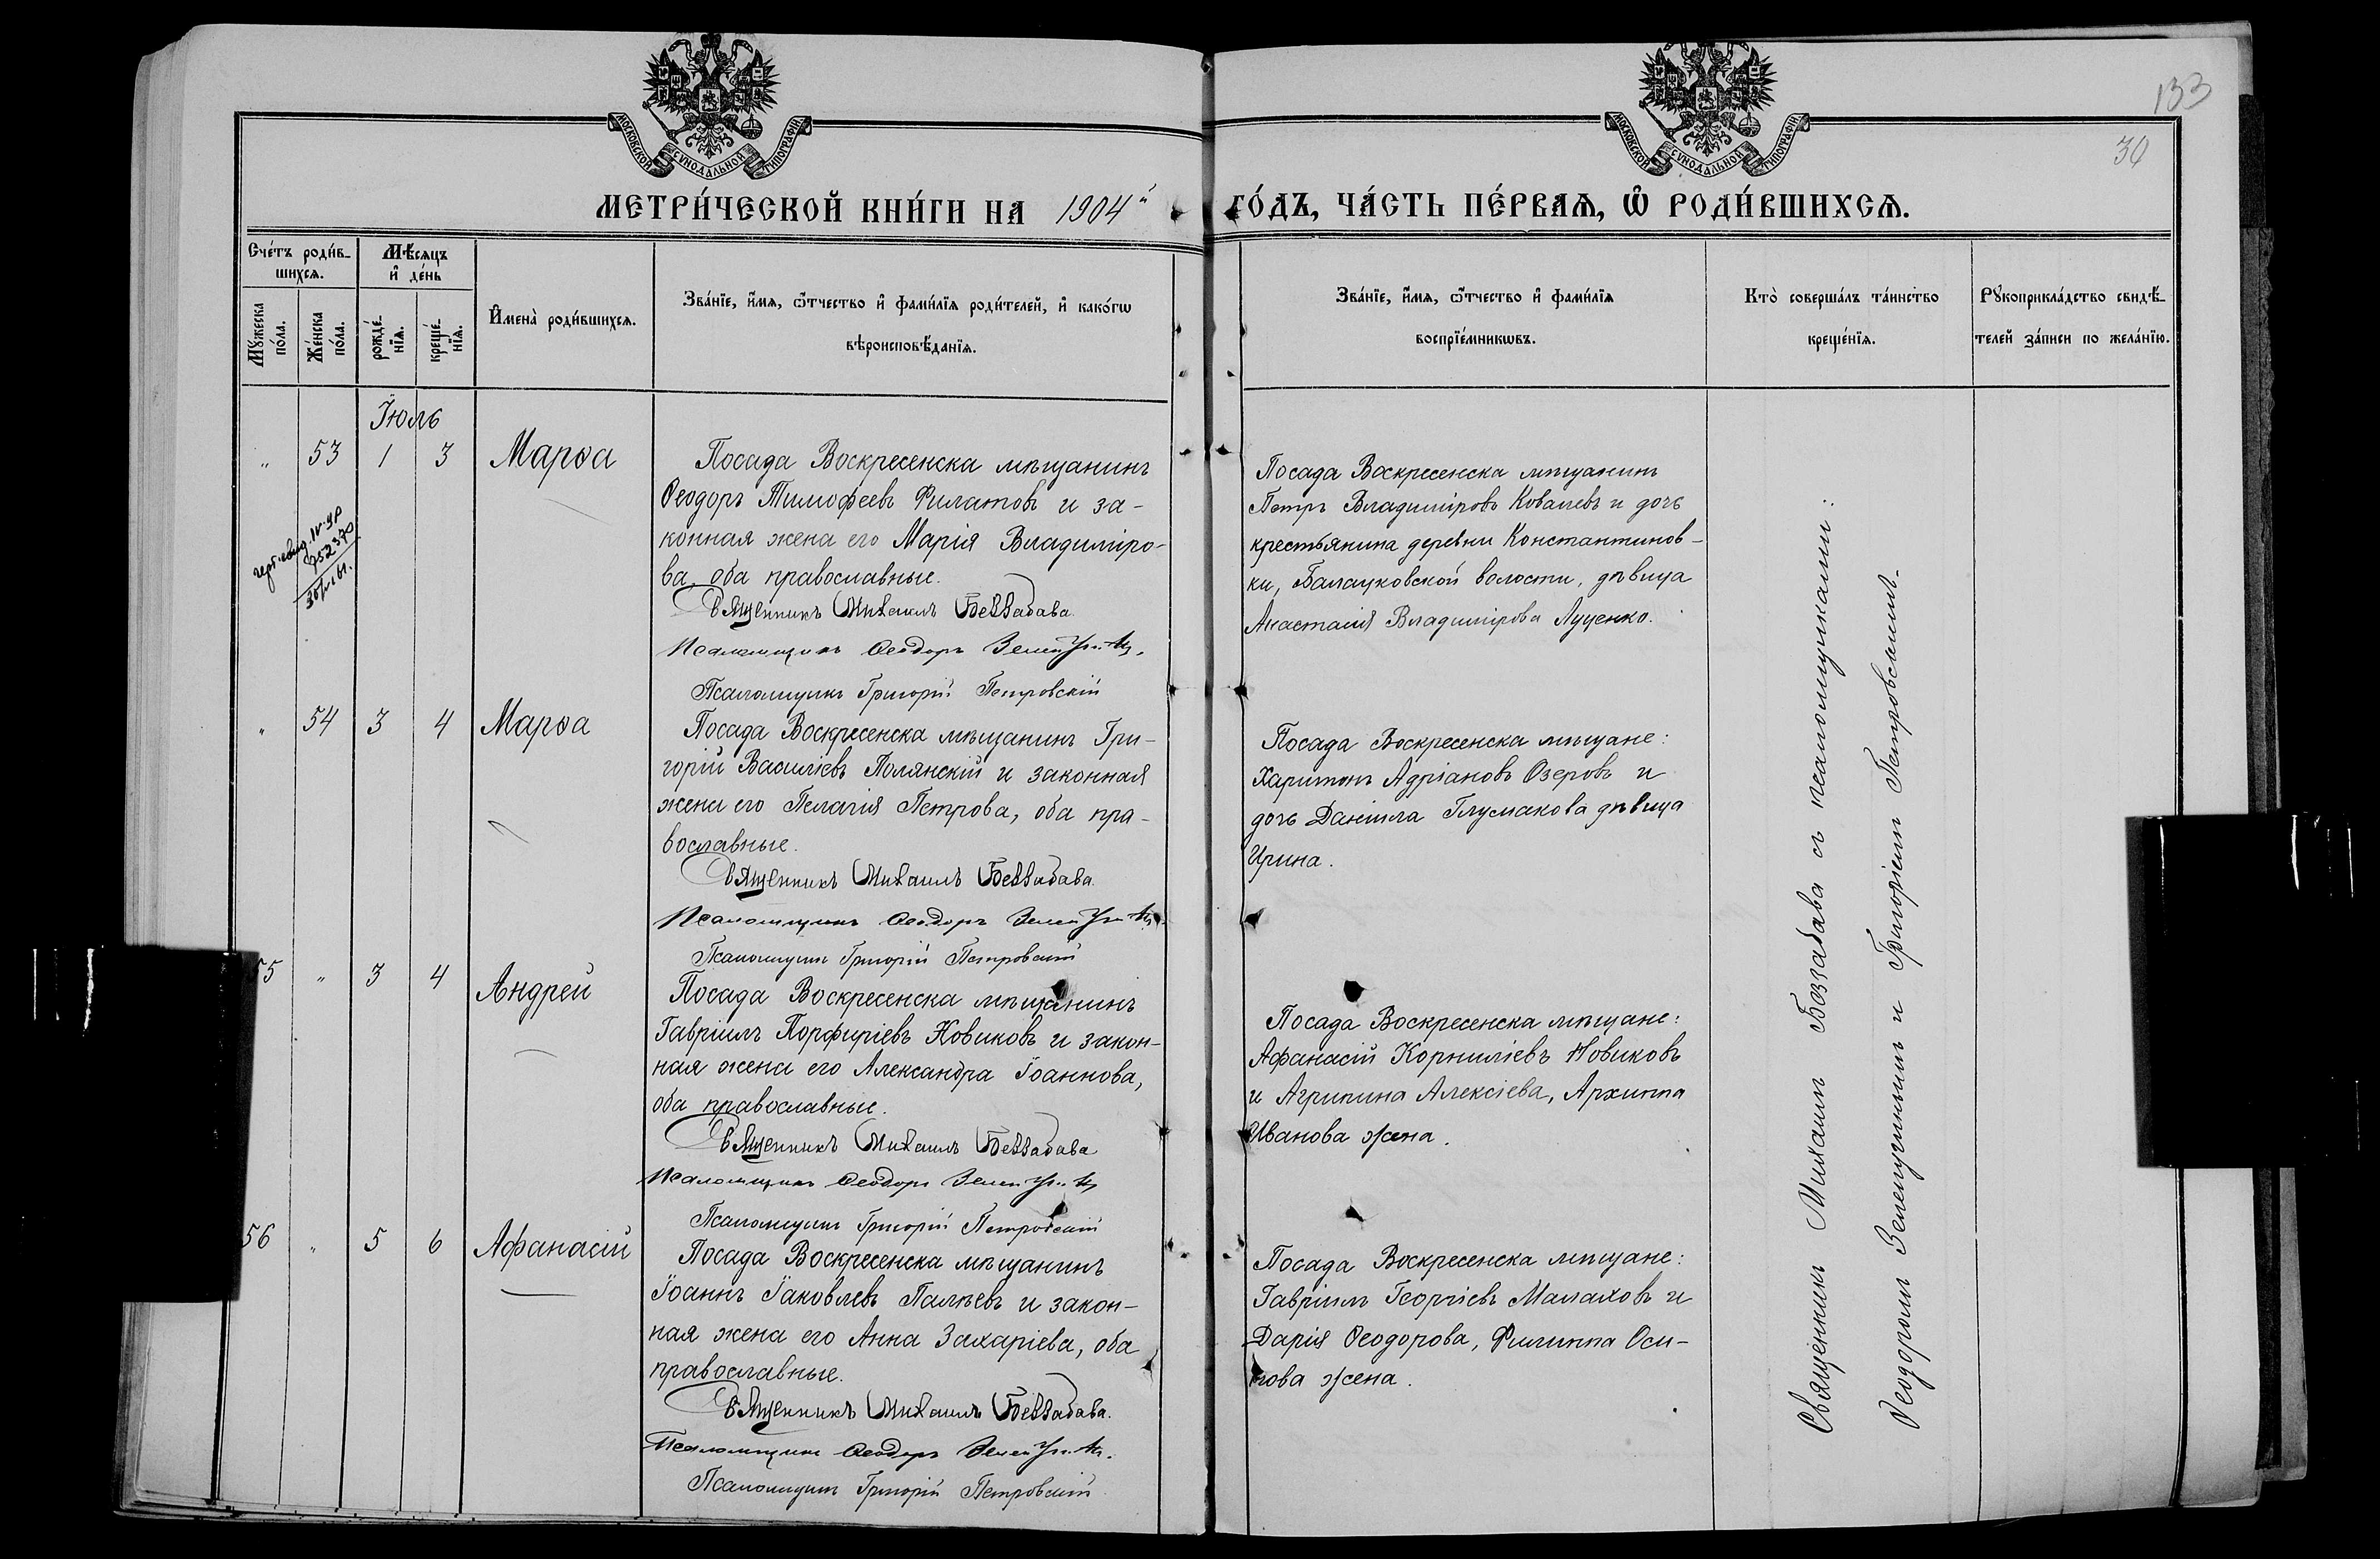 МОСКОВСКОЙ СѴНОДАЛЬНОЙ ТИПОГРАФІИ
МОСКОВСКОЙ СѴНОДАЛЬНОЙ ТИПОГРАФІИ
133
30
МЕТРИ́ЧЕСКОЙ КНИ́ГИ НА 1904й
ГО́ДЪ, ЧА́СТЬ ПЕ́РВАѦ, Ѡ҆ РОДИ́ВШИХСѦ.
Сче́тъ роди́в-
шихсѧ.
Мꙋ́жеска
по́ла.
Же́нска
по́ла.
Мѣ́сѧцъ
и҆ де́нь
рожде́-
нїѧ.
креще́-
нїѧ.
И҆мена̀ роди́вшихсѧ.
Зва́нїе, и҆́мѧ, ѻ҆́тчество и҆ фами́лїѧ роди́телей, и҆ како́гѡ
вѣроисповѣ́данїѧ.
Зва́нїе, и҆́мѧ, ѻ҆́тчество и҆ фами́лїѧ
воспрїе́мникѡвъ.
Кто̀ соверша́лъ та́инство
креще́нїѧ.
Рꙋкоприкла́дство свидѣ́-
телей за́писи по жела́нїю.
Іюль
" 53 1 3 Марѳа
Посада Воскресенска мѣщанинъ
Ѳеодоръ Тимофеевъ Филатовъ и за-
конная жена его Марія Владиміро-
ва, оба православные.
Священникъ Михаилъ Беззабава.
Псаломщикъ Ѳеодоръ
Псаломщикъ Григорій Петровскій
Посада Воскресенска мѣщанинъ
Петръ Владиміровъ Ковалевъ и дочь
крестьянина деревни Константинов-
ки, Балацковской волости, дѣвица
Анастасія Владимірова Луценко.
" 54 3 4 Марѳа
Посада Воскресенска мѣщанинъ Гри-
горій Василіевъ Полянскій и законная
жена его Пелагія Петрова, оба пра-
вославные.
Священникъ Михаилъ Беззабава.
Псаломщикъ Ѳеодоръ
Псаломщикъ Григорій Петровскій
Посада Воскресенска мѣщане:
Харитонъ Адріановъ Озеровъ и
дочь Даніила Глумакова дѣвица
Ирина.
55 " 3 4 Андрей
Посада Воскресенска мѣщанинъ
Гавріилъ Порфиріевъ Новиковъ и закон-
ная жена его Александра Іоаннова,
оба православные.
Священникъ Михаилъ Беззабава
Псаломщикъ Ѳеодоръ
Псаломщикъ Григорій Петровскій
Посада Воскресенска мѣщане:
Афанасій Корниліевъ Новиковъ
и Агрипина Алексіева, Архиппа
Иванова жена.
56 " 5 6 Афанасій
Посада Воскресенска мѣщанинъ
Іоаннъ Іаковлевъ Палѣевъ и закон-
ная жена его Анна Захаріева, оба
православные.
Священникъ Михаилъ Беззабава.
Псаломщикъ Ѳеодоръ
Псаломщикъ Григорій Петровскій
Посада Воскресенска мѣщане:
Гавріилъ Георгіевъ Малаховъ и
Дарія Ѳеодорова, Филиппа Оси-
пова жена.
Священникъ Михаилъ Беззабава съ псаломщиками:
Ѳеодоромъ и Григоріемъ Петровскимъ.